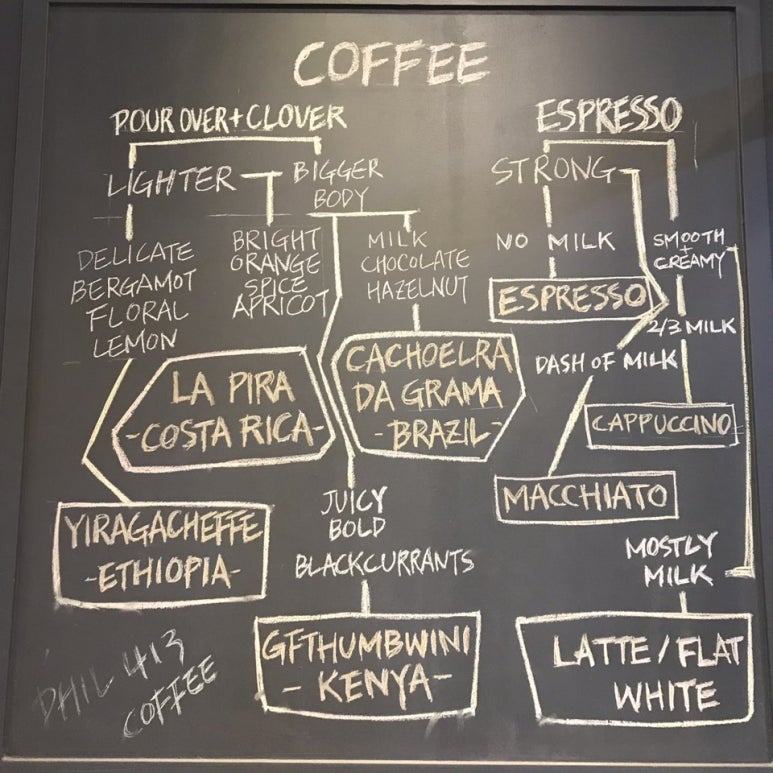 COFFEE
POUR OVER + CLOVER
LIGHTER
BIGGER
BODY
DELICATE
BERGAMOT
FLORAL
LEMON
BRIGHT
ORANGE
SPICE
APRICOT
MILK
CHOCOLATE
HAZELNUT
LA PIRA
-COSTA RICA-
CACHOELRA
DA GRAMA
-BRAZIL-
YIRAGACHEFFE
-ETHIOPIA-
JUICY
BOLD
BLACKCURRANTS
GFTHUMBWINI
-KENYA-
ESPRESSO
STRONG
NO MILK
ESPRESSO
SMOOTH
+
CREAMY
2/3 MILK
DASH OF MILK
CAPPUCCINO
MACCHIATO
MOSTLY
MILK
LATTE/FLAT
WHITE
PHIL 413
COFFEE